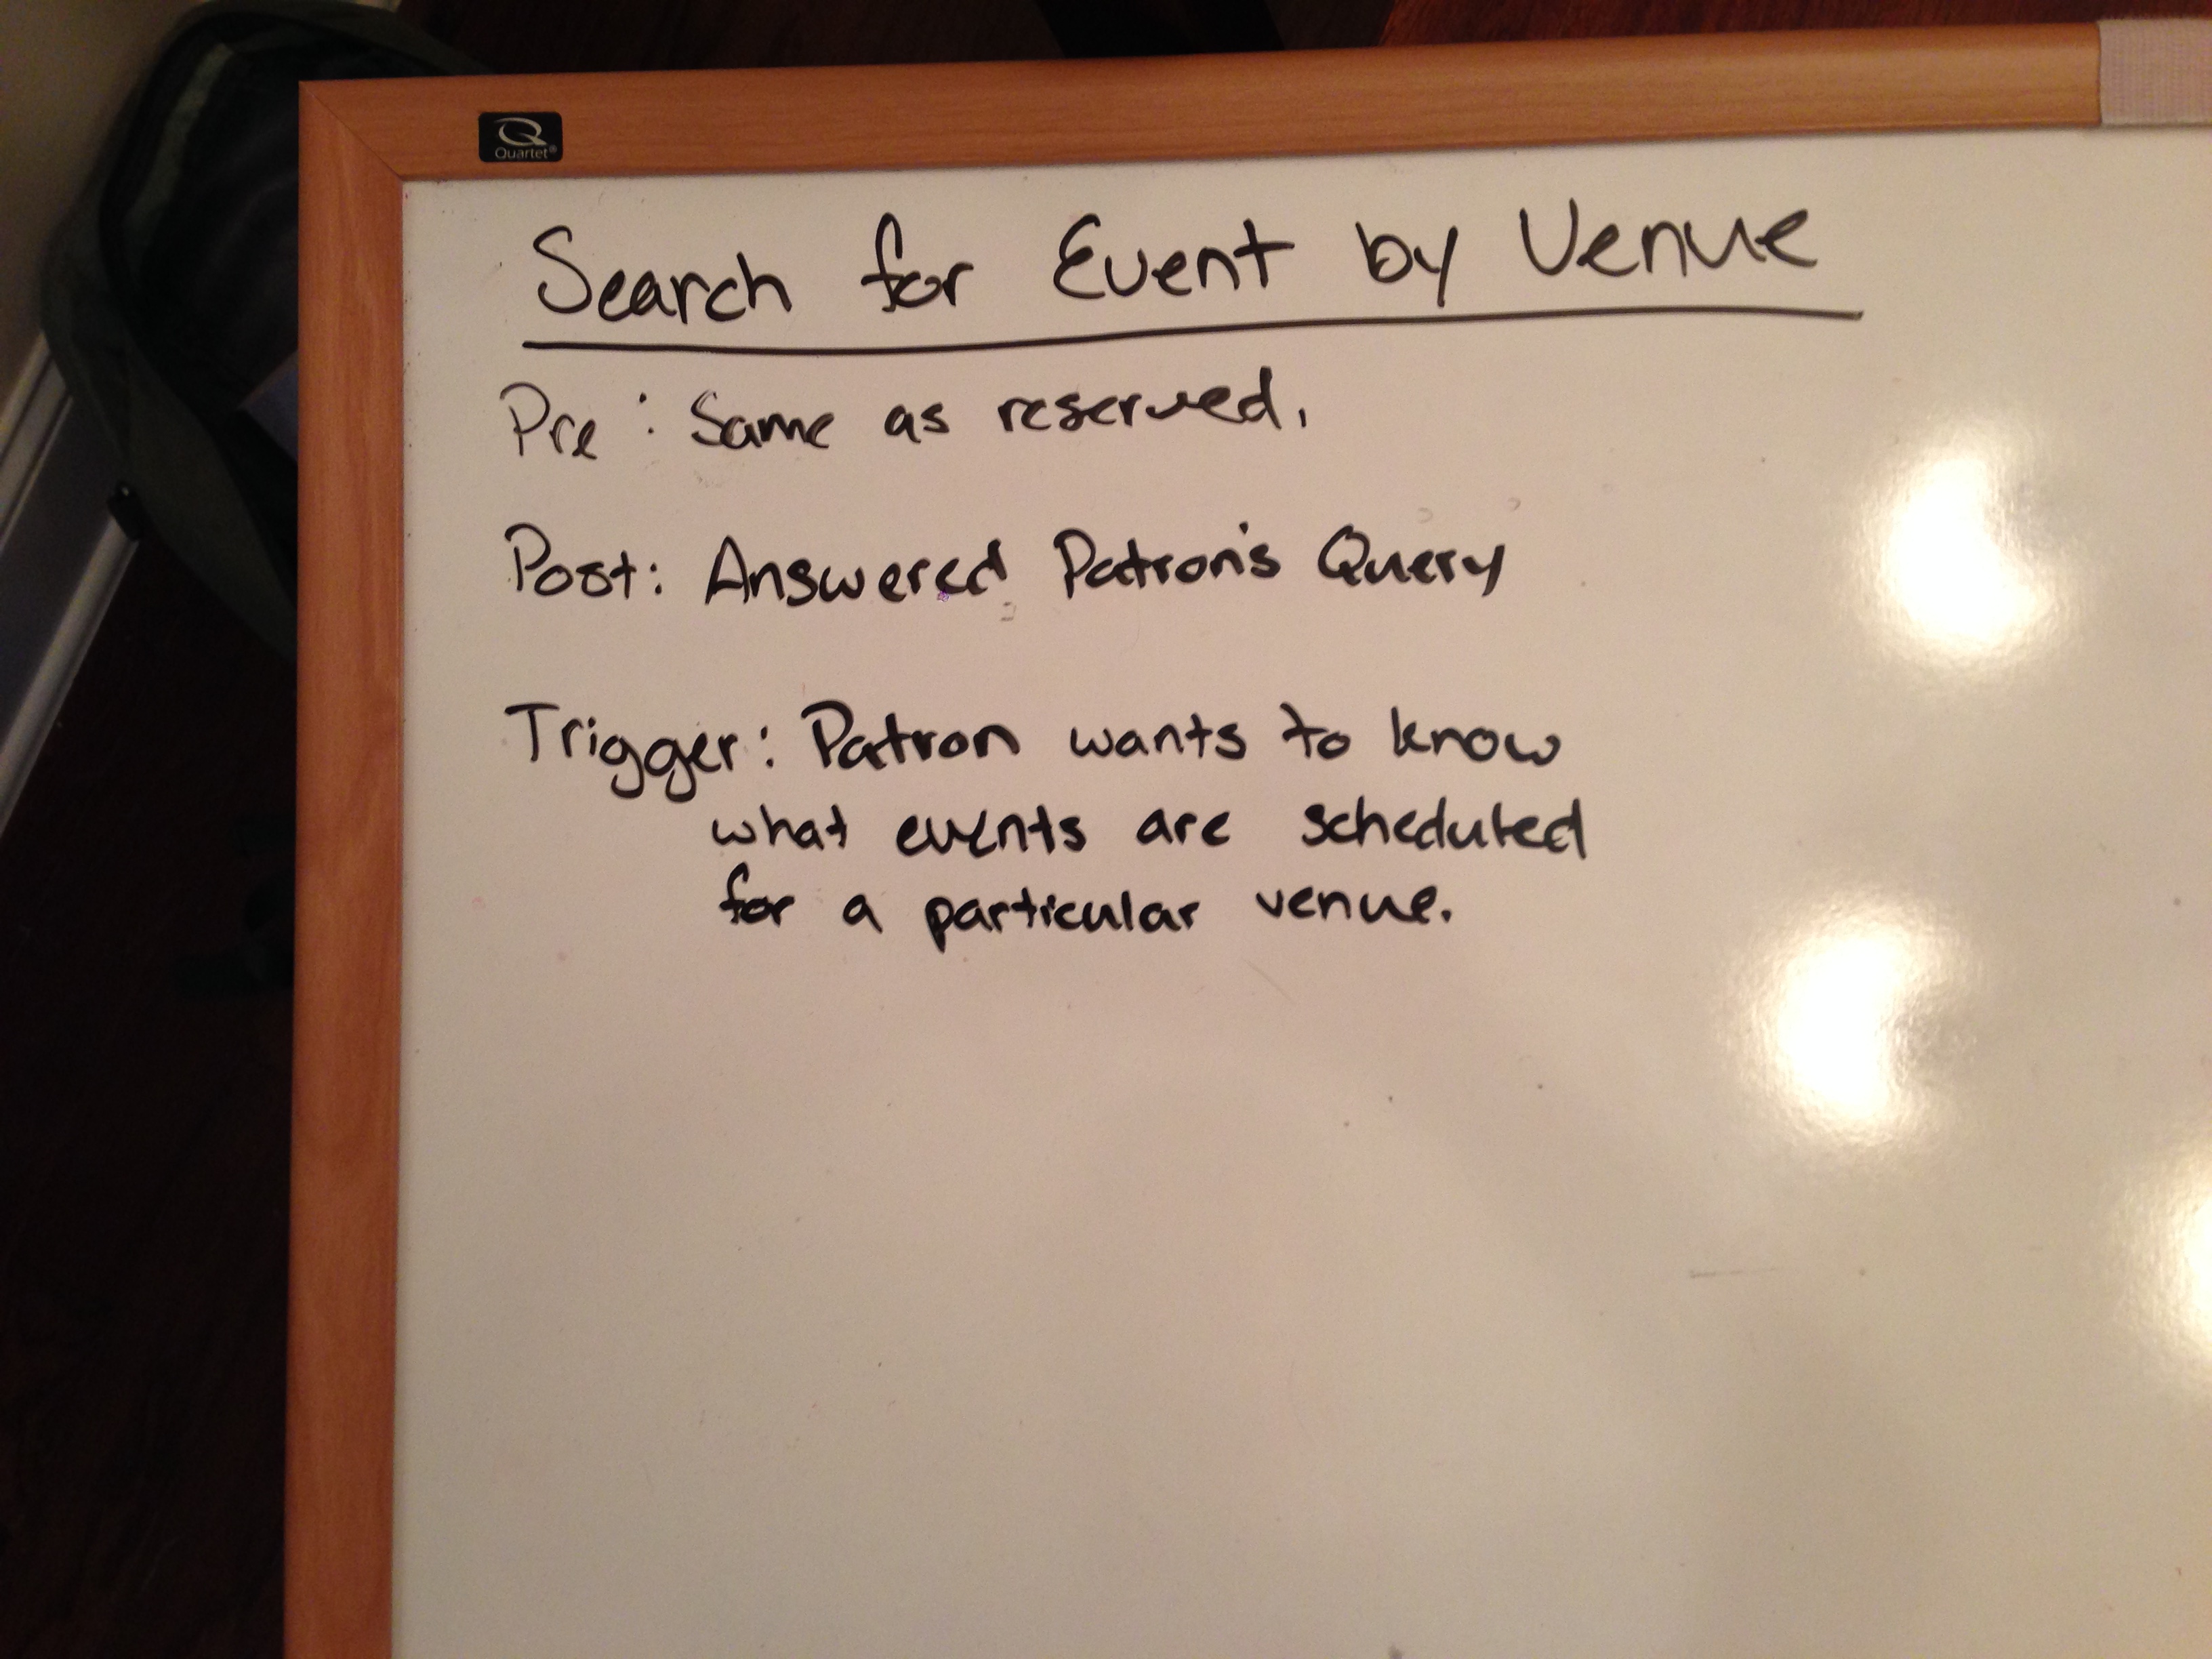 Quartet®
Search for Event by Venue
Pre: Same as reserved.
Post: Answered Patron's Query
Trigger: Patron wants to know
what events are scheduled
for a particular venue.